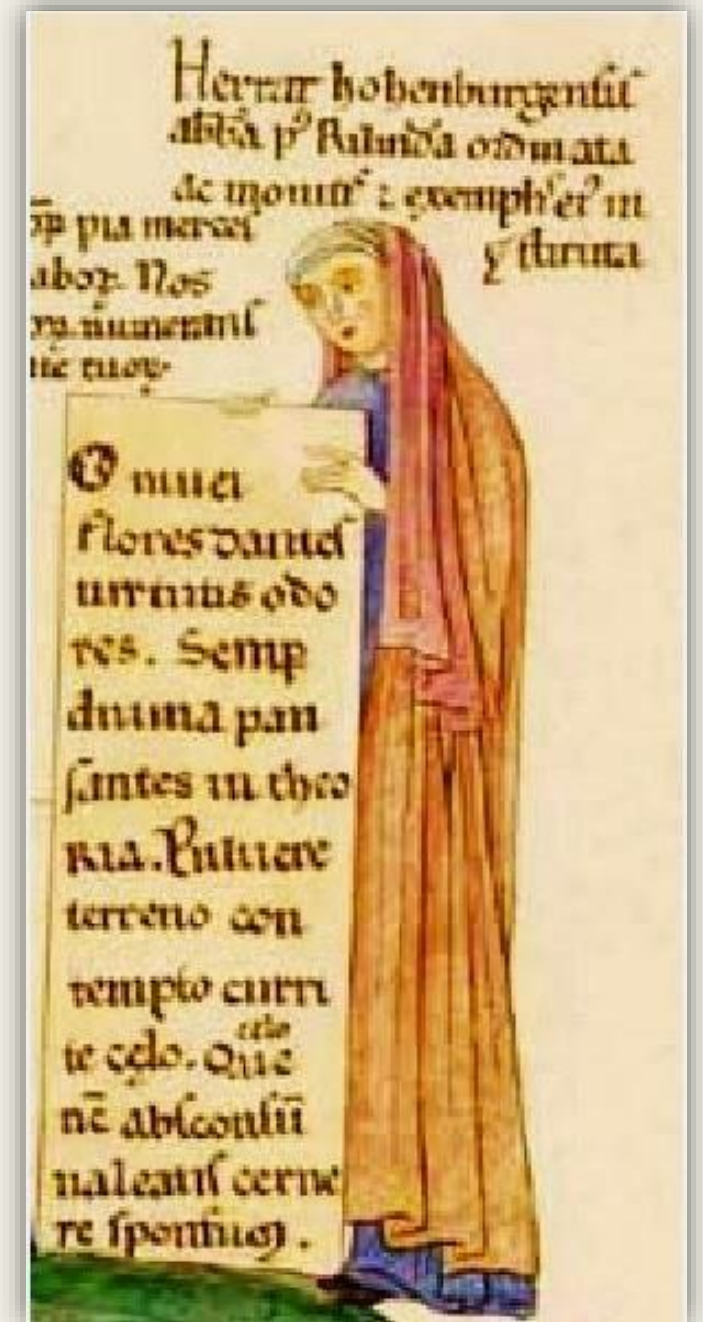 Herrat hohenburgensis
abb̄a p⁹ Rilindā ordinata
ac monitis ⁊ exemplis ei⁹ in
stituta
pia merces
labor. Nos
numerans
tuoꝝ
O niuei
flores dantes
uirtutis odo
res. Semp
diuina pau
santes in theo
ria. Puluere
terreno con
tempto curri
te cęlo. Quo
celo
nc̄ absconsū
ualeatis cerne
re sponsum.